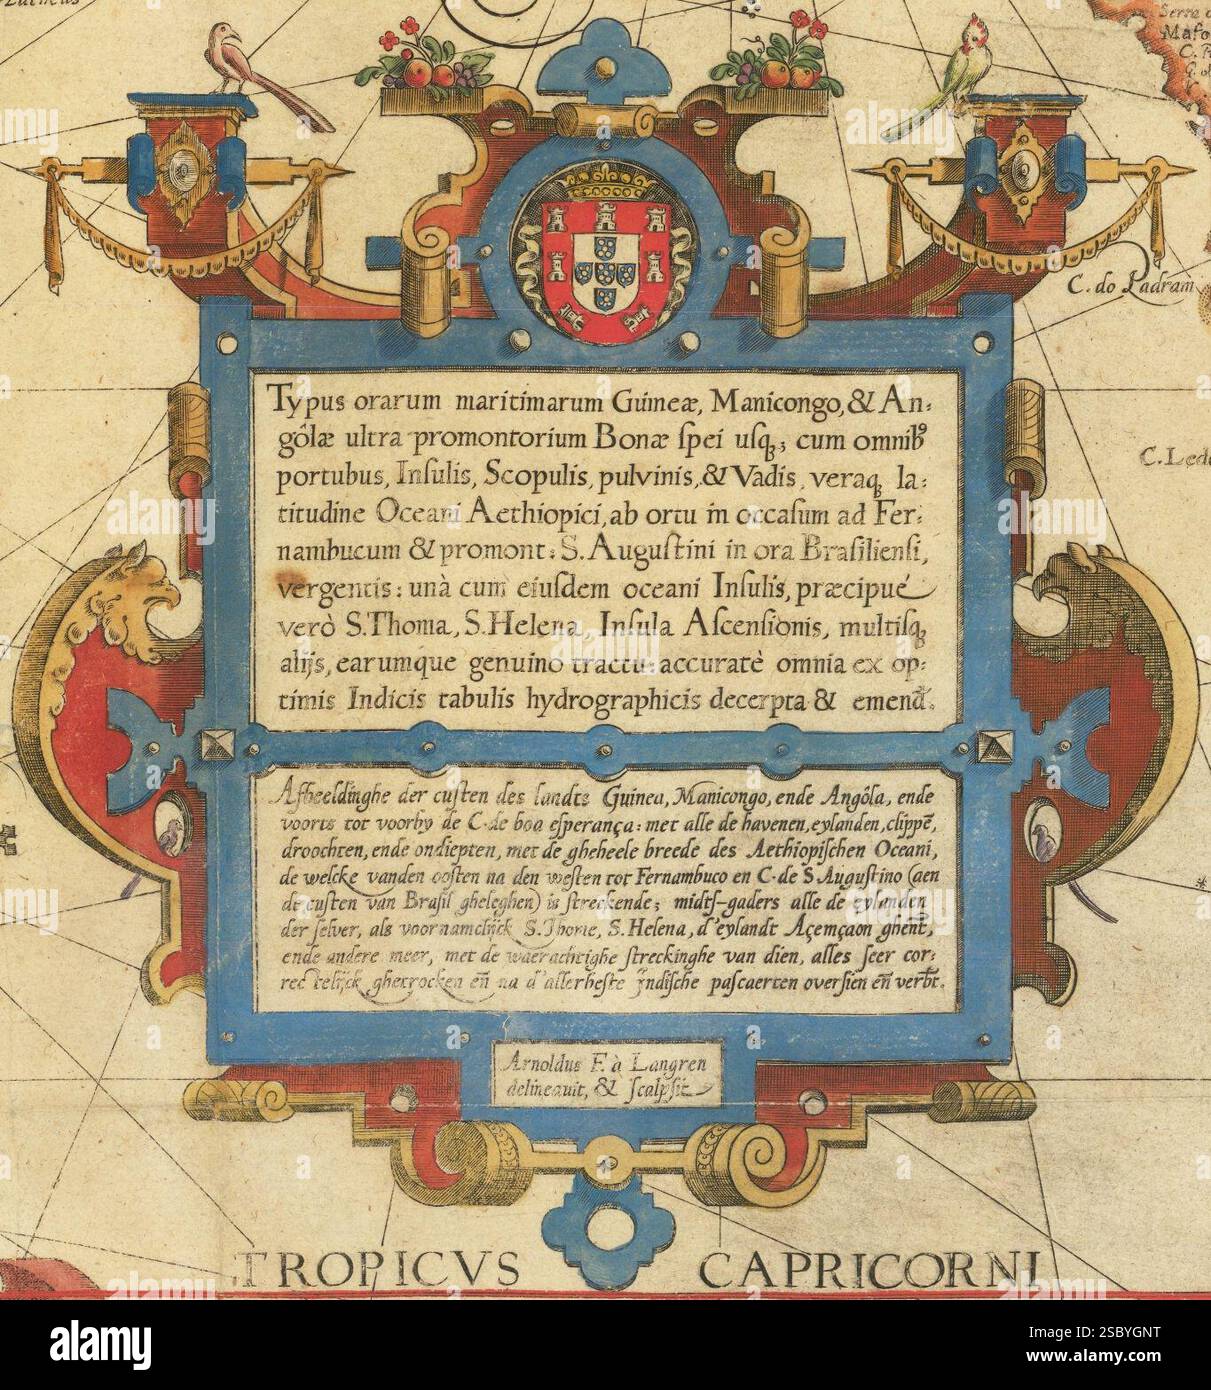 Serra
Mafo
C. do Ladram
C. Lede
Typus orarum maritimarum Guineæ, Manicongo, & An:
gôlæ ultra promontorium Bonæ ſpei uſq; cum omnibꝰ
portubus, Inſulis, Scopulis, pulvinis, & Vadis, veraq; la:
titudine Oceani Aethiopici, ab ortu in occaſum ad Fer:
nambucum & promont: S. Auguſtini in ora Braſilienſi,
vergentis: unà cum eiuſdem oceani Inſulis, præcipué
verò S. Thoma, S. Helena, Inſula Aſcenſionis, multiſq;
alijs, earumque genuino tractu: accuratè omnia ex op:
timis Indicis tabulis hydrographicis decerpta & emend.
Afbeeldinghe der cuſten des landts Guinea, Manicongo, ende Angôla, ende
voorts tot voorby de C. de boa eſperança: met alle de havenen, eylanden, clippē,
droochten, ende ondiepten, met de gheheele breede des Aethiopiſchen Oceani,
de welcke vanden ooſten na den weſten tot Fernambuco en C. de S. Auguſtino (aen
de cuſten van Braſil gheleghen) is ſtreckende; midtſ-gaders alle de eylanden
der ſelver, als voornamelijck S. Thome, S. Helena, d'eylandt Açemçaon ghent,
ende andere meer, met de waerachtighe ſtreckinghe van dien, alles ſeer cor:
rectelijck ghetrocken eñ na d'allerbeſte Indiſche paſcaerten overſien eñ verbt.
Arnoldus F. à Langren
delineavit, & ſcalpſit
TROPICVS CAPRICORNI
alamy
Image ID: 2SBYGNT
www.alamy.com